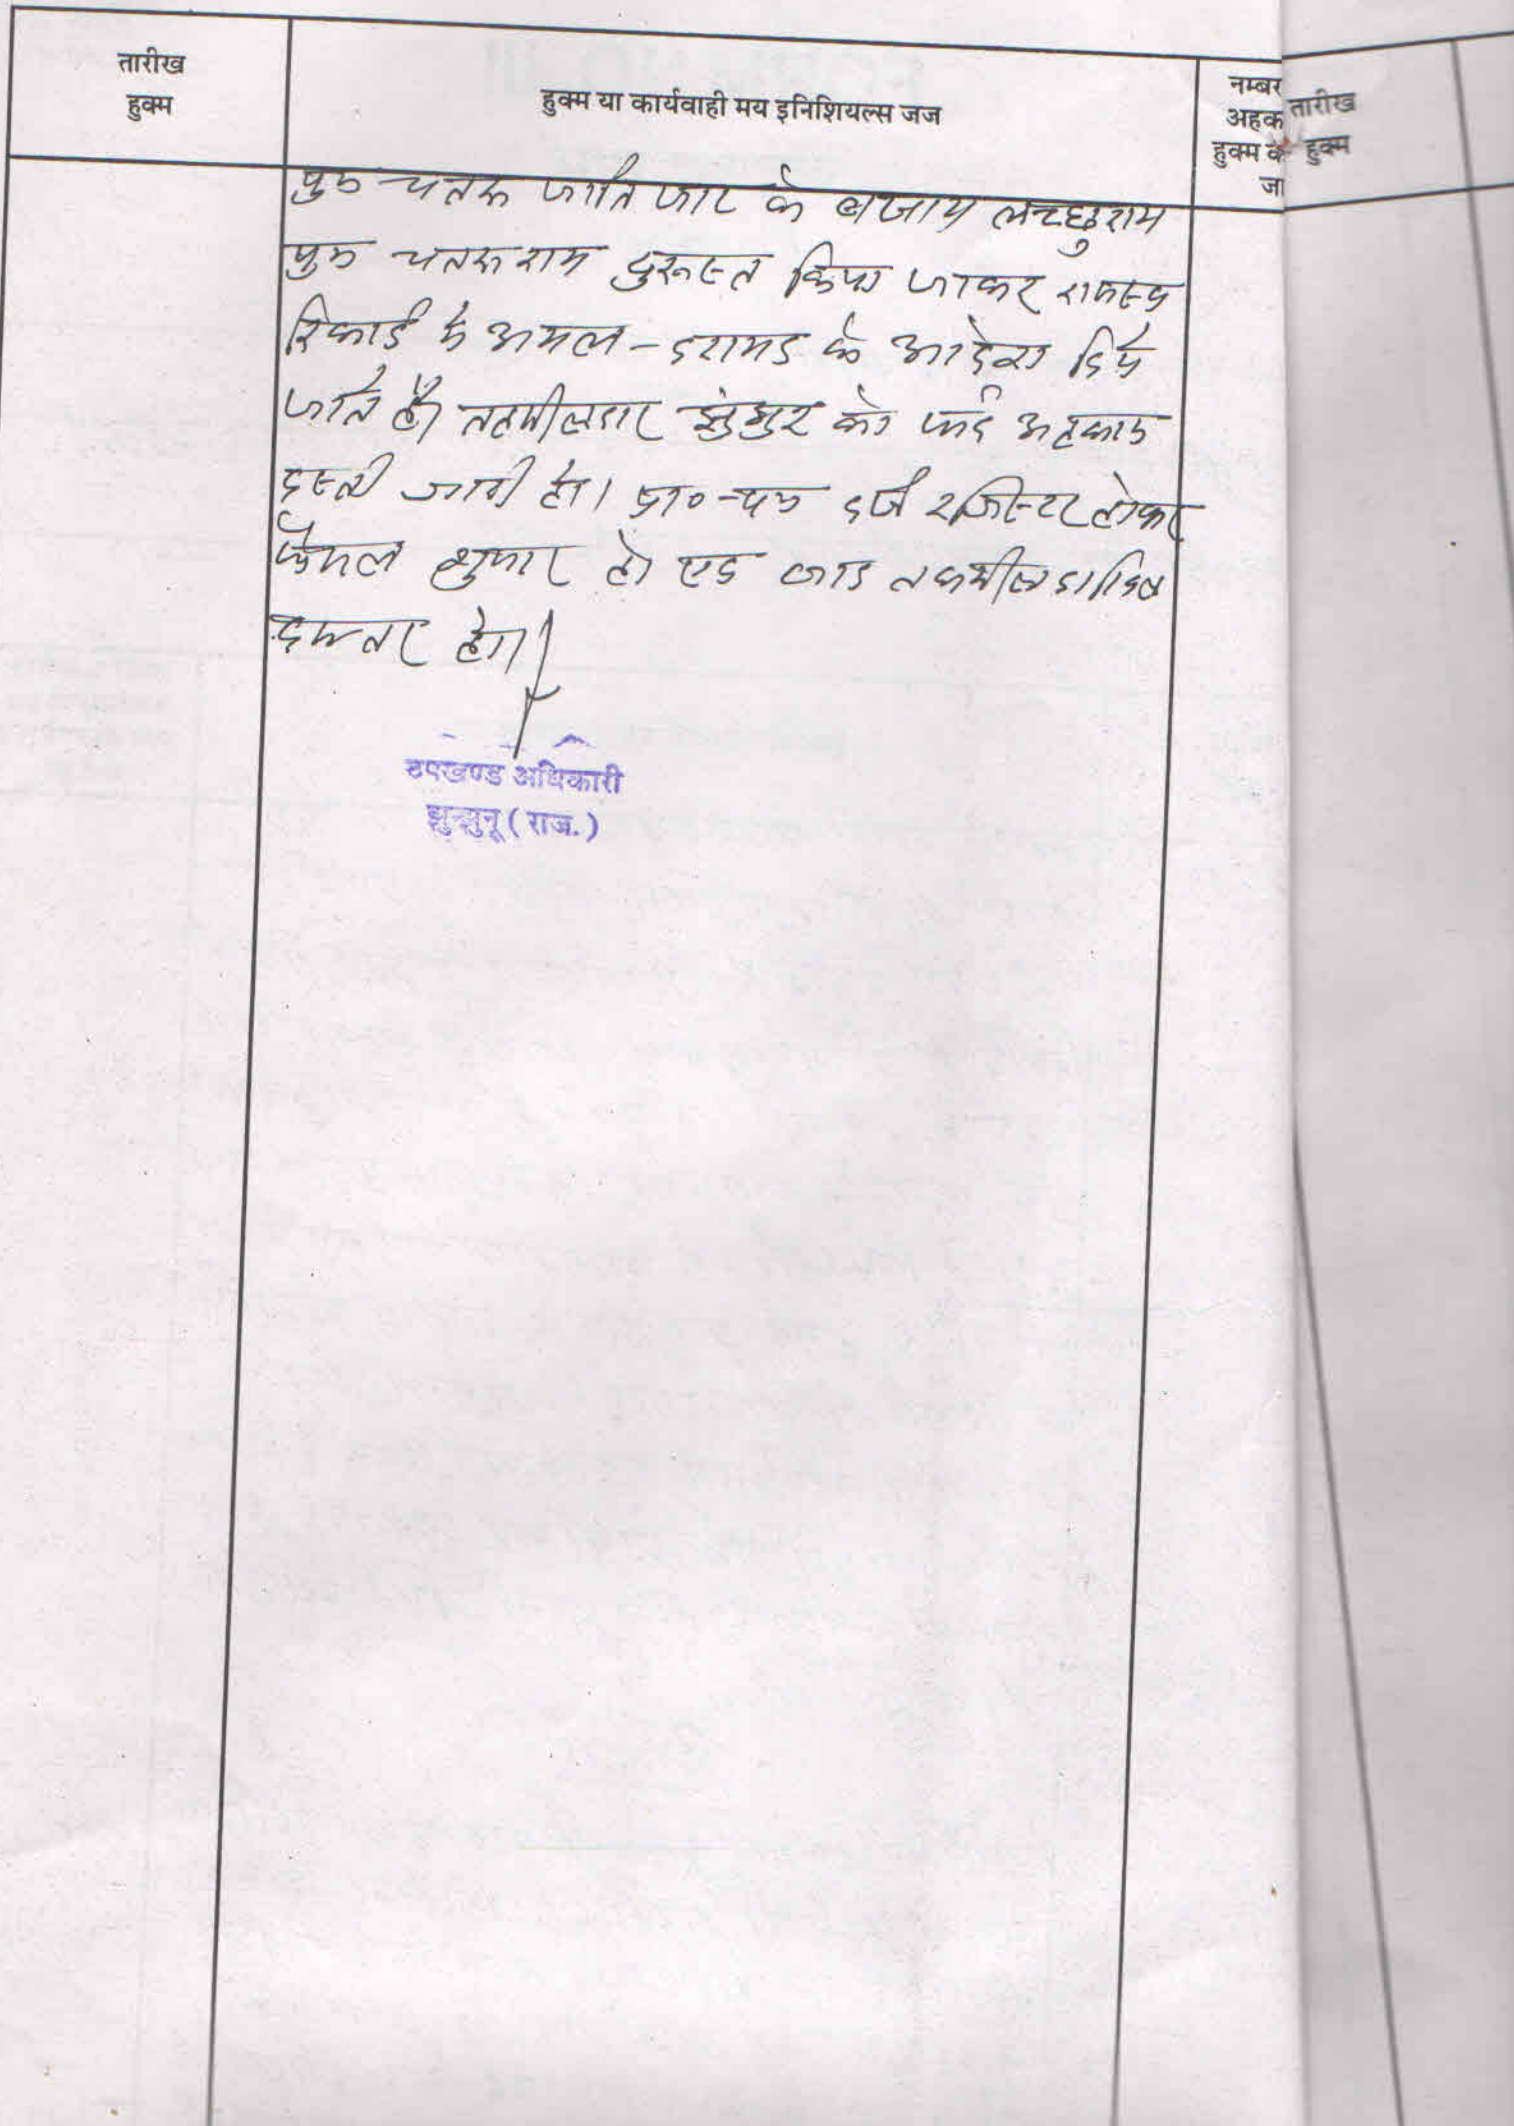 तारीख
हुक्म
हुक्म या कार्यवाही मय इनिशियल्स जज
नम्बर
अहक
हुक्म के
जा
तारीख
हुक्म
पुत्र चतरू जाति जाट के बजाय लच्छुराम
पुत्र चतरूराम दुरूस्त किया जाकर राजस्व
रिकार्ड में अमल-दरामद के आदेश दिये
जाते है। तहसीलदार झुंझुनू को फर्द अहकाम
दस्ती जारी हो। प्रा०-पत्र दर्ज रजिस्टर होकर
फैसल शुमार हो बाद तकमील दाखिल
दफ्तर होगा।
उपखण्ड अधिकारी
झुन्झुनू (राज.)